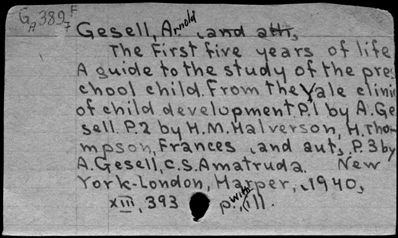 GA389 7F
Gesell, Arnold, and oth,
The first five years of life
A guide to the study of the pres
chool child. From the Yale clinic
of child development. P.1 by A. Ge
sell. P.2 by H.M. Halverson, H. Tho
mpson, Frances and aut., P.3 by
A. Gesell, C.S. Amatruda. New
York-London, Harper, 1940,
XIII, 393 p. with ill.